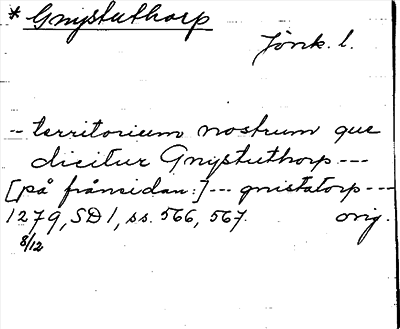 * Gnystuthorp
Jönk. l.
-- territorium nostrum que
dicitur Gnystuthorp ---
[på frånsidan:] --- gnistatorp ---
1279, SD 1, ss. 566, 567. orig.
8/12